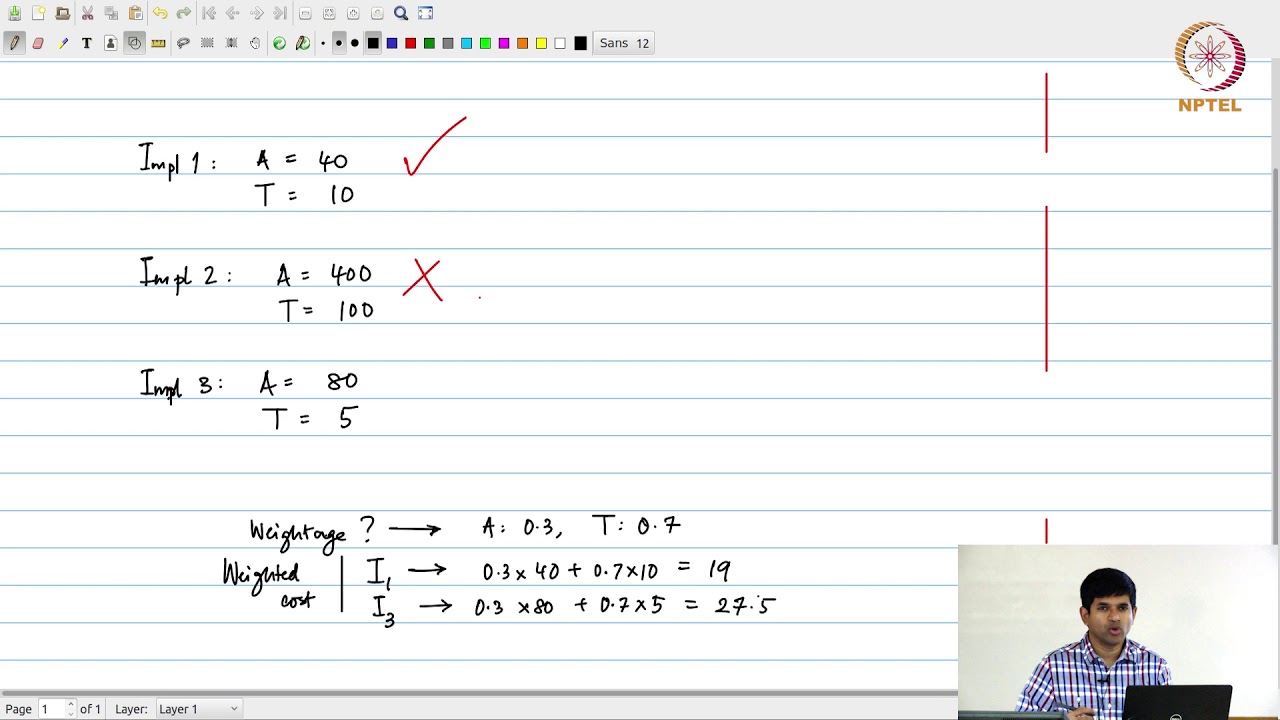 Sans 12
NPTEL
Impl 1: A = 40
T = 10
Impl 2: A = 400
T = 100
Impl 3: A = 80
T = 5
Weightage ? → A: 0.3, T: 0.7
Weighted cost
I1 → 0.3 × 40 + 0.7 × 10 = 19
I3 → 0.3 × 80 + 0.7 × 5 = 27.5
Page 1 of 1 Layer: Layer 1